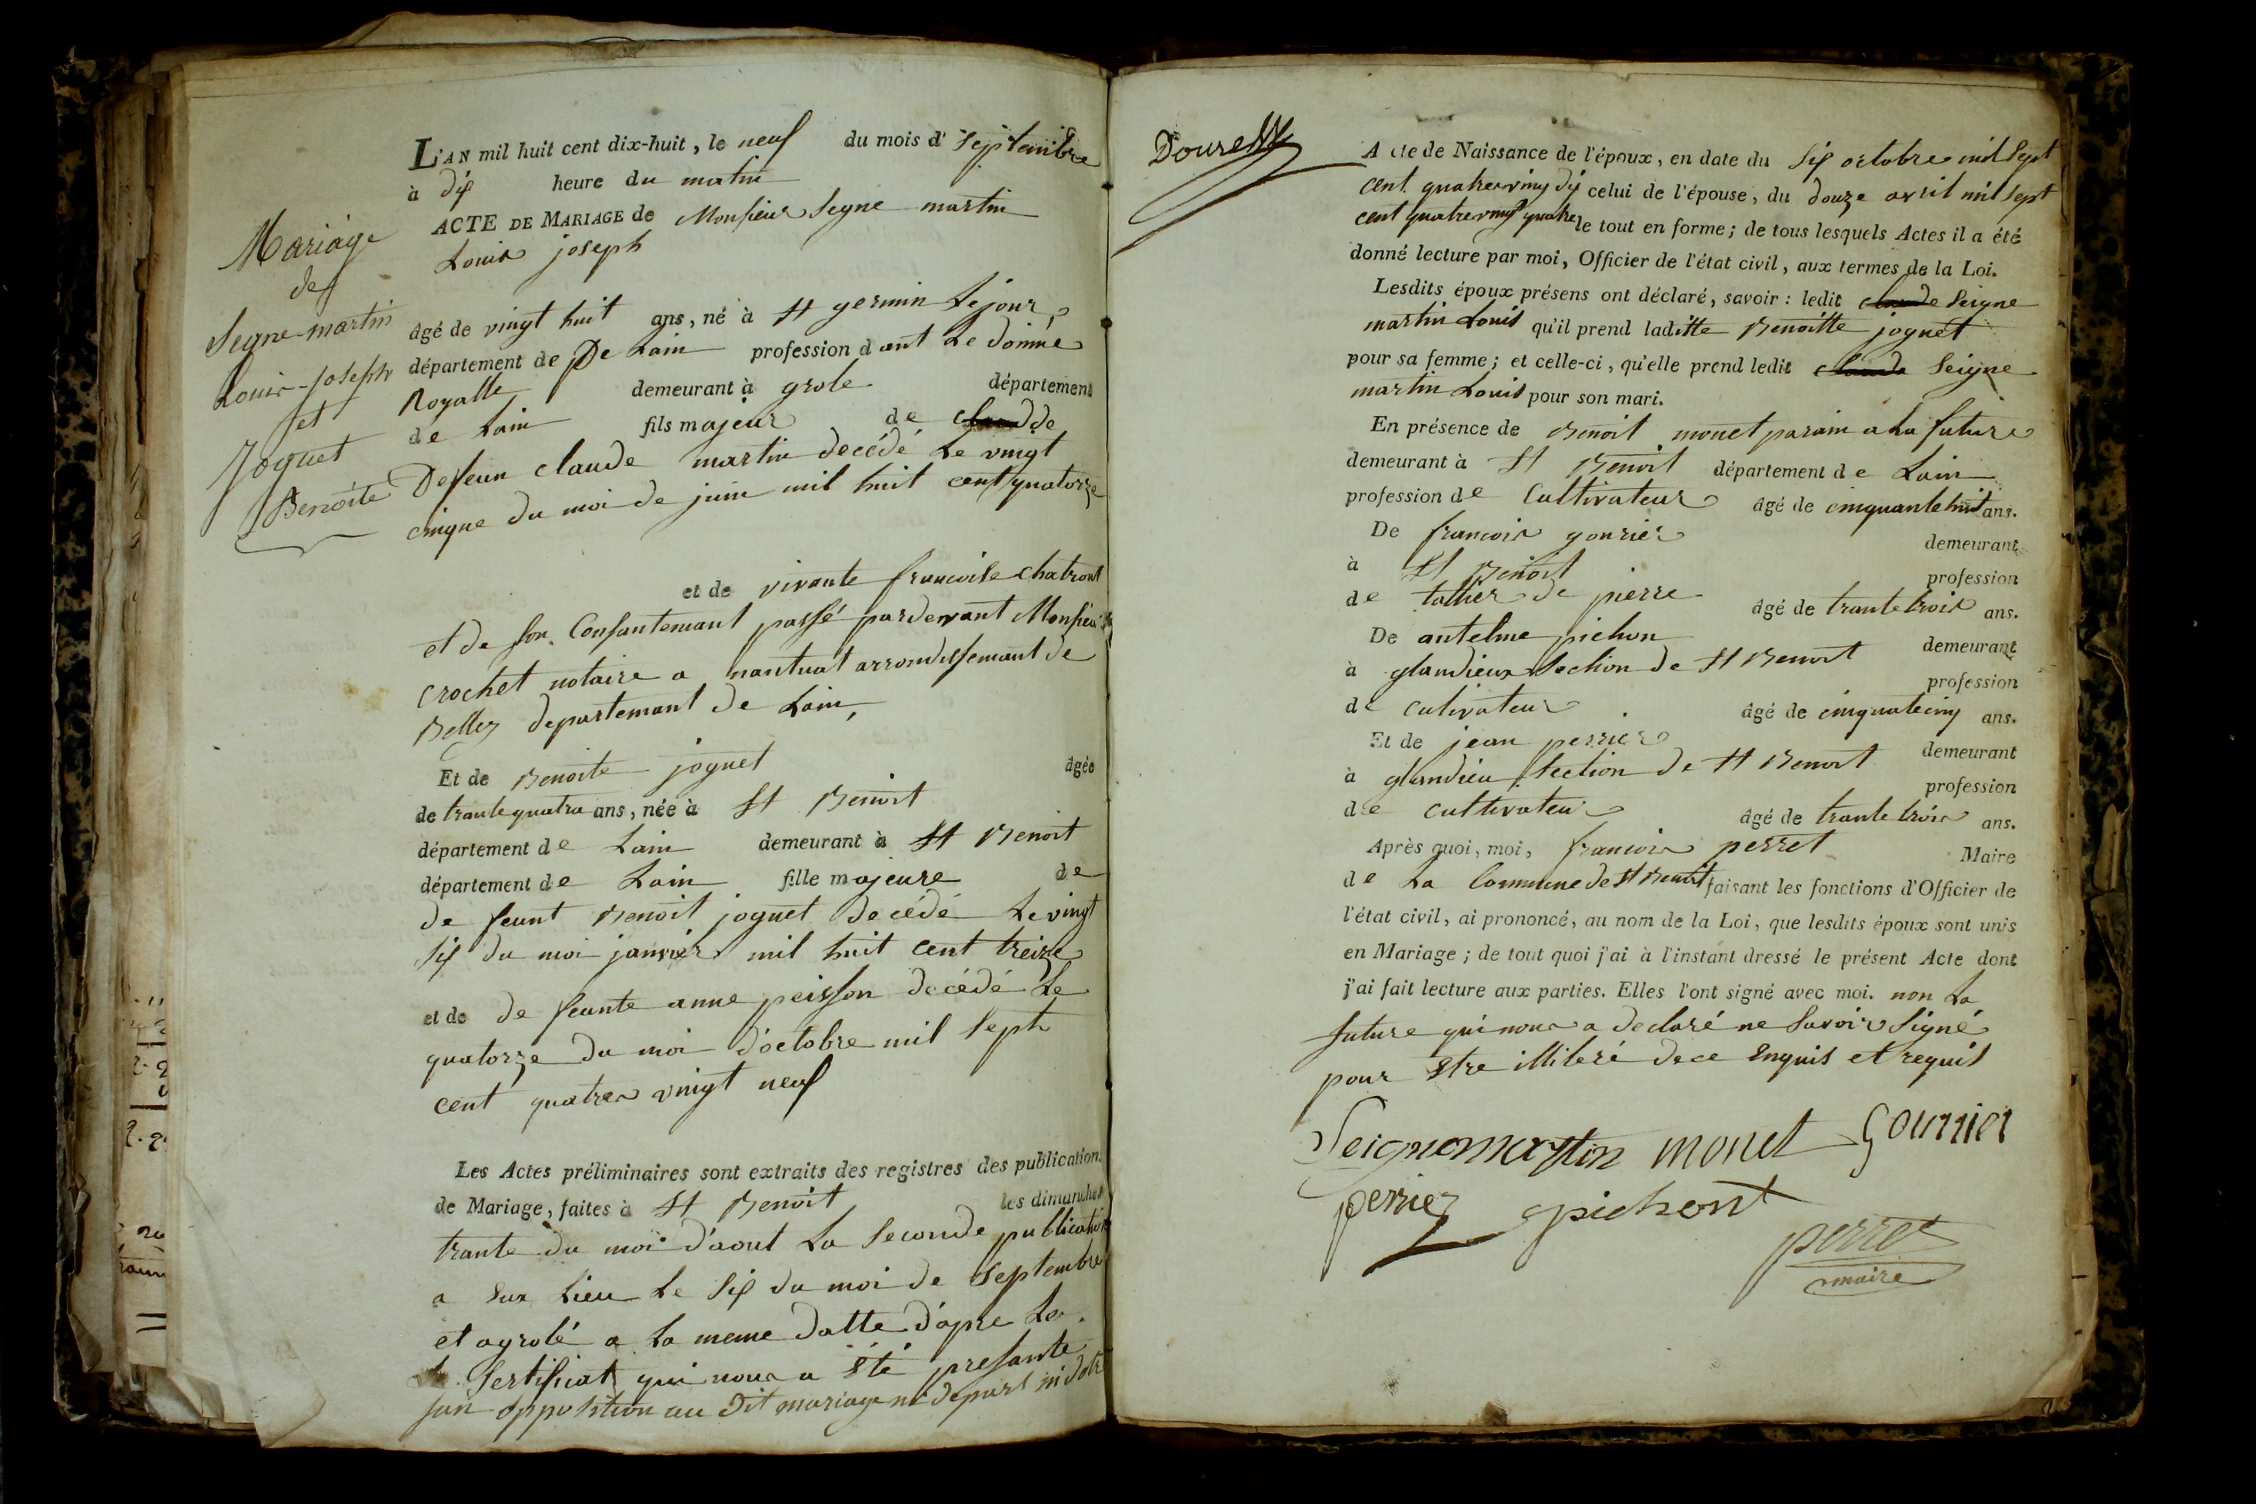 Mariage
des
Segne-martin
Louis-Joseph
et
Joguet
Benoite
L'AN mil huit cent dix-huit, le neuf du mois d' septembre
à dix heure du matin
ACTE DE MARIAGE de Monsieur Segne martin
Louis joseph
âgé de vingt huit ans, né à St germin
département de De Lain profession dant
Royalle demeurant à grole département
de Lain fils majeur de
Defeun claude martin decédé Le vingt
cinque du moi de juin mil huit cent quatorze
et de vivante francoise chatront
et de son Consantemant passé pardevant Monsieur
crochet notaire a nantuat arrondissemant de
Belley departemant de Lain,
Et de Benoite joguet âgée
de trante quatra ans, née à St Benoit
département de Lain demeurant à St Benoit
département de Lain fille majeure de
de feunt Benoit joguet decédé Le vingt
six du moi janvier mil huit cent treize
et de de feunte anne peisson decédé Le
quatorze du moi d'octobre mil septs
cent quatre vingt neuf
Les Actes préliminaires sont extraits des registres des publications
de Mariage, faites à St Benoit les dimanches
trante du moi d'aout La seconde publication
a eux Lieu Le six du moi de septembre
et a grolé a La meme datte d'apre Le
sertificat qui nous a été presante
san opposition au Dit mariage ni depart ni dotre
Dourelly
Acte de Naissance de l'époux, en date du six octobre mil sept
cent quatre ving dix celui de l'épouse, du douze avril mil sept
cent quatre vingt quatre le tout en forme; de tous lesquels Actes il a été
donné lecture par moi, Officier de l'état civil, aux termes de la Loi.
Lesdits époux présens ont déclaré, savoir : ledit claude Seigne
martin Louis qu'il prend laditte Benoitte joguet
pour sa femme; et celle-ci, qu'elle prend ledit claude Seigne
martin Louis pour son mari.
En présence de Benoit monet parain a La future
demeurant à St Benoit département de Lain
profession de Cultivateur âgé de cinquante huit ans.
De francois gourier demeurant
à St Benoit profession
de tallier de pierre âgé de trante trois ans.
De antelme pichon demeurant
à glandieux section de St Benoit profession
de cutivateur âgé de cinquate cinq ans.
Et de jean perrier demeurant
à glandieu section de St Benoit profession
de cultivateur âgé de trante trois ans.
Après quoi, moi, francois perret Maire
de La Commune de St Benoit faisant les fonctions d'Officier de
l'état civil, ai prononcé, au nom de la Loi, que lesdits époux sont unis
en Mariage; de tout quoi j'ai à l'instant dressé le présent Acte dont
j'ai fait lecture aux parties. Elles l'ont signé avec moi. non La
future qui nous a declaré ne savoir signé
pour etre illiteré de ce enquis et requis
Seignemartin monet gourrier
perrier pichont
perret
maire